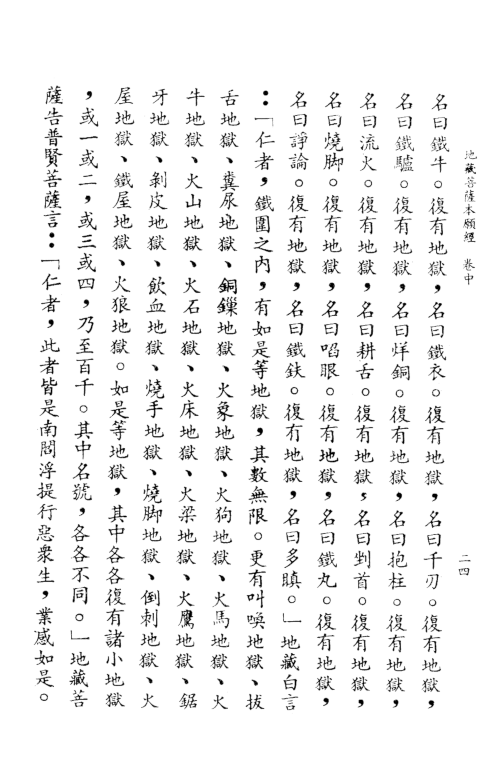 地藏菩薩本願經　卷中
二四
名曰鐵牛。復有地獄，名曰鐵衣。復有地獄，名曰千刃。復有地獄，
名曰鐵驢。復有地獄，名曰烊銅。復有地獄，名曰抱柱。復有地獄，
名曰流火。復有地獄，名曰耕舌。復有地獄，名曰剉首。復有地獄，
名曰燒脚。復有地獄，名曰啗眼。復有地獄，名曰鐵丸。復有地獄，
名曰諍論。復有地獄，名曰鐵鈇。復有地獄，名曰多瞋。」地藏白言
：「仁者，鐵圍之內，有如是等地獄，其數無限。更有叫喚地獄、拔
舌地獄、糞尿地獄、銅鏁地獄、火象地獄、火狗地獄、火馬地獄、火
牛地獄、火山地獄、火石地獄、火床地獄、火梁地獄、火鷹地獄、鋸
牙地獄、剝皮地獄、飲血地獄、燒手地獄、燒脚地獄、倒刺地獄、火
屋地獄、鐵屋地獄、火狼地獄。如是等地獄，其中各各復有諸小地獄
，或一或二，或三或四，乃至百千。其中名號，各各不同。」地藏菩
薩告普賢菩薩言：「仁者，此者皆是南閻浮提行惡衆生，業感如是。